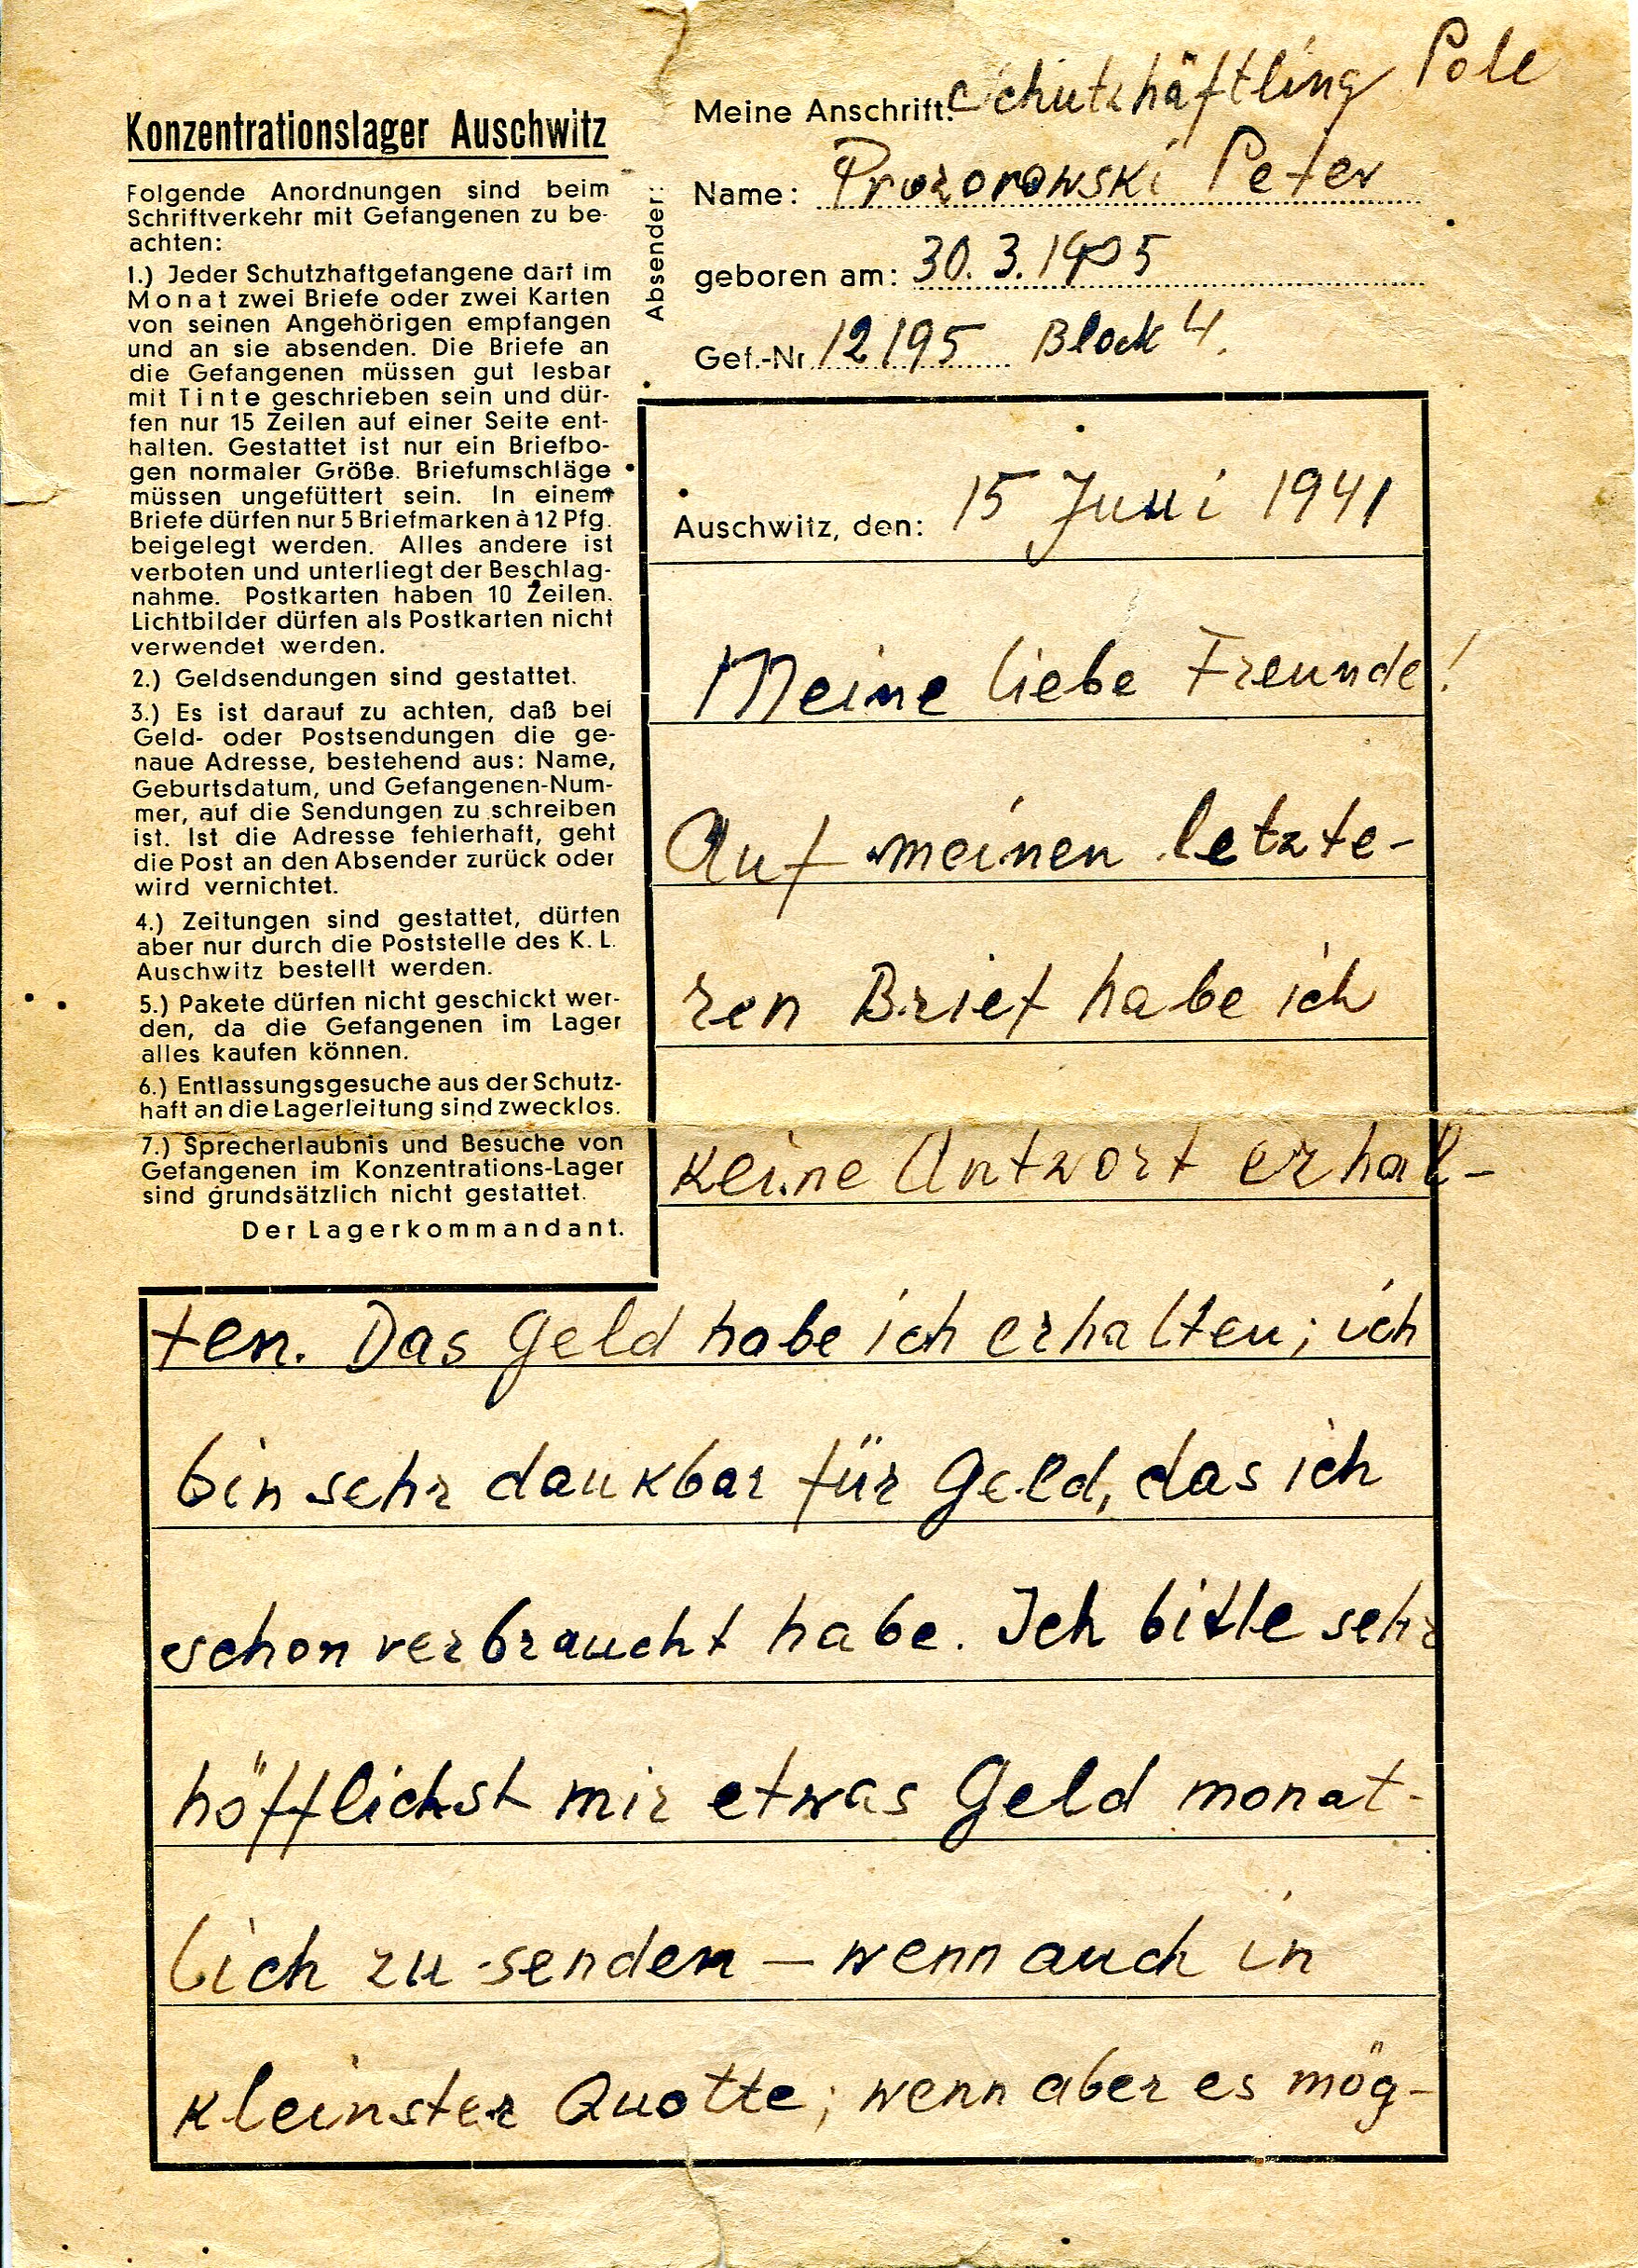 Konzentrationslager Auschwitz
Folgende Anordnungen sind beim
Schriftverkehr mit Gefangenen zu be-
achten:
1.) Jeder Schutzhaftgefangene darf im
Monat zwei Briefe oder zwei Karten
von seinen Angehörigen empfangen
und an sie absenden. Die Briefe an
die Gefangenen müssen gut lesbar
mit Tinte geschrieben sein und dür-
fen nur 15 Zeilen auf einer Seite ent-
halten. Gestattet ist nur ein Briefbo-
gen normaler Größe. Briefumschläge
müssen ungefüttert sein. In einem
Briefe dürfen nur 5 Briefmarken à 12 Pfg.
beigelegt werden. Alles andere ist
verboten und unterliegt der Beschlag-
nahme. Postkarten haben 10 Zeilen.
Lichtbilder dürfen als Postkarten nicht
verwendet werden.
2.) Geldsendungen sind gestattet.
3.) Es ist darauf zu achten, daß bei
Geld- oder Postsendungen die ge-
naue Adresse, bestehend aus: Name,
Geburtsdatum, und Gefangenen-Num-
mer, auf die Sendungen zu schreiben
ist. Ist die Adresse fehlerhaft, geht
die Post an den Absender zurück oder
wird vernichtet.
4.) Zeitungen sind gestattet, dürfen
aber nur durch die Poststelle des K. L.
Auschwitz bestellt werden.
5.) Pakete dürfen nicht geschickt wer-
den, da die Gefangenen im Lager
alles kaufen können.
6.) Entlassungsgesuche aus der Schutz-
haft an die Lagerleitung sind zwecklos.
7.) Sprecherlaubnis und Besuche von
Gefangenen im Konzentrations-Lager
sind grundsätzlich nicht gestattet.
Der Lagerkommandant.
Absender:
Meine Anschrift: Schutzhäftling Pole
Name: Prozorowski Peter
geboren am: 30. 3. 1905
Gef.-Nr. 12195 Block 4.
Auschwitz, den: 15 Juni 1941
Meine liebe Freunde!
Auf meinen letzte-
ren Brief habe ich
keine Antwort erhal-
ten. Das Geld habe ich erhalten; ich
bin sehr dankbar für Geld, das ich
schon verbraucht habe. Ich bitte sehr
höfflichst mir etwas Geld monat-
lich zu senden – wenn auch in
kleinster Quotte; wenn aber es mög-